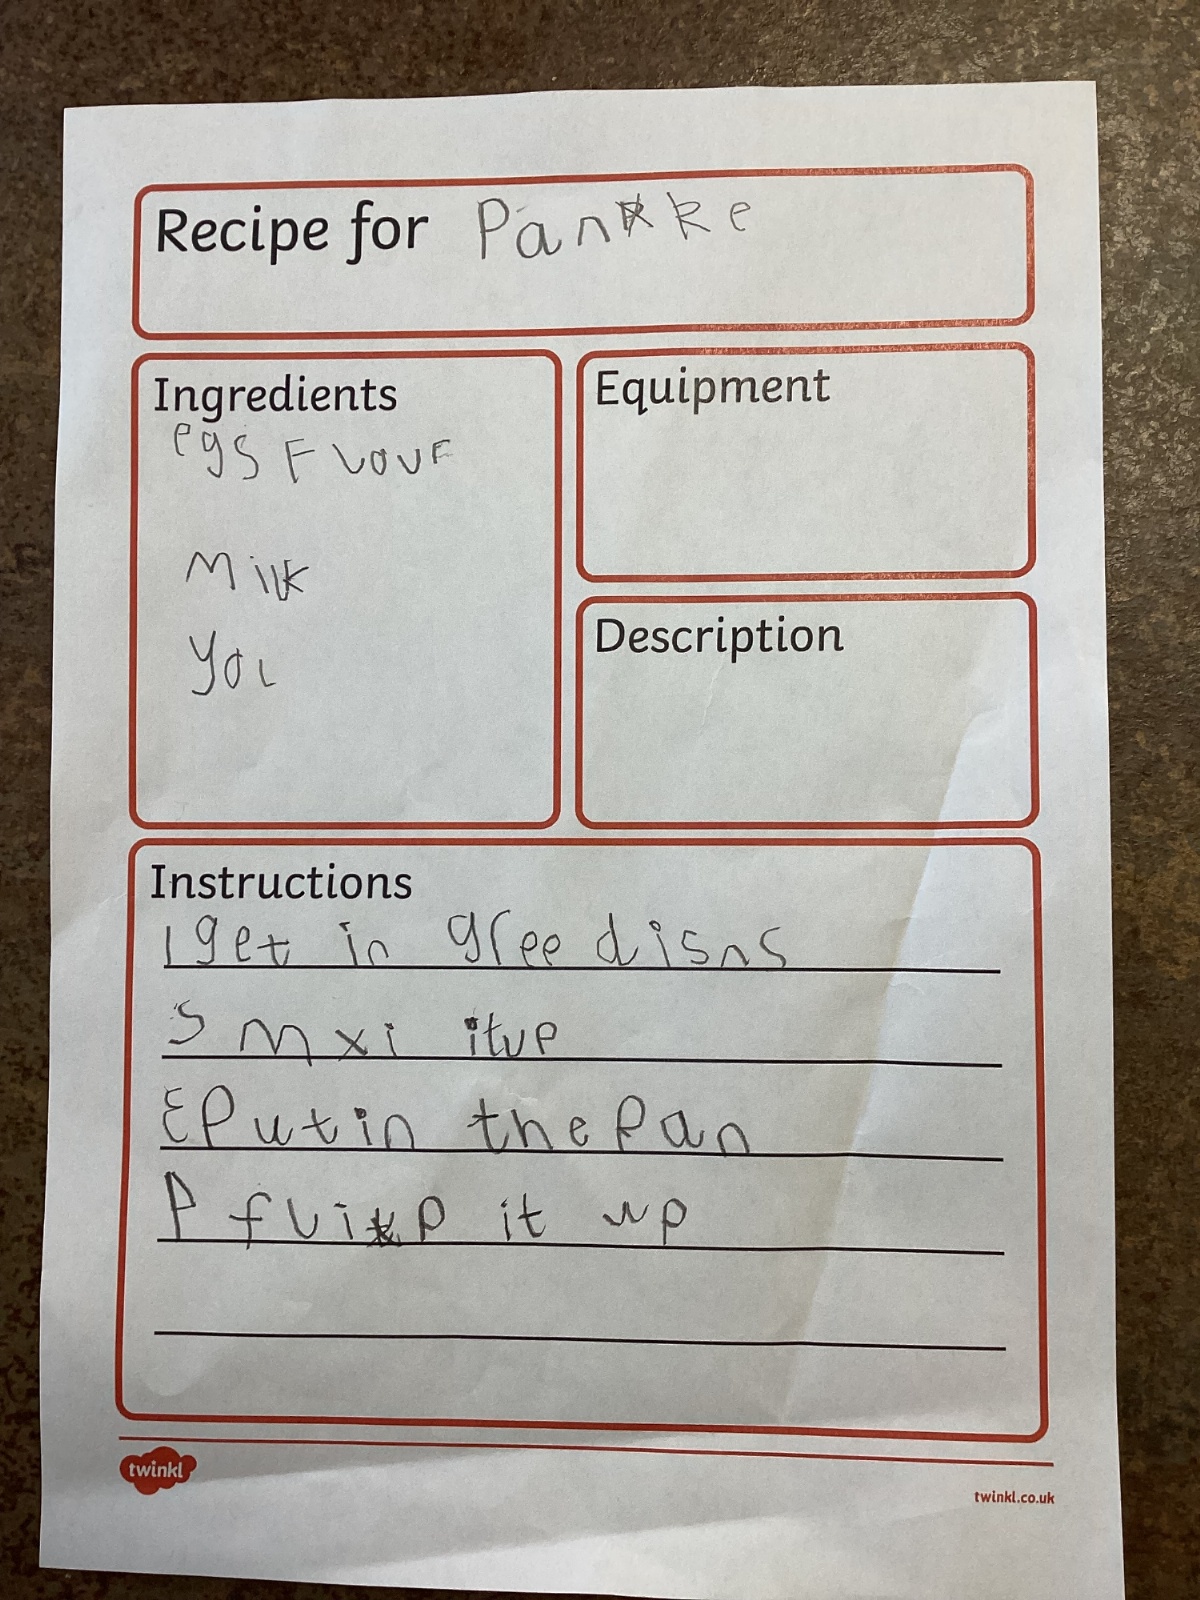 Recipe for Panke
Ingredients
egs Flour
Milk
yoi
Equipment
Description
Instructions
1get in greedisns
S mxi itup
3Putin the Pan
P flip it up
twinkl
twinkl.co.uk